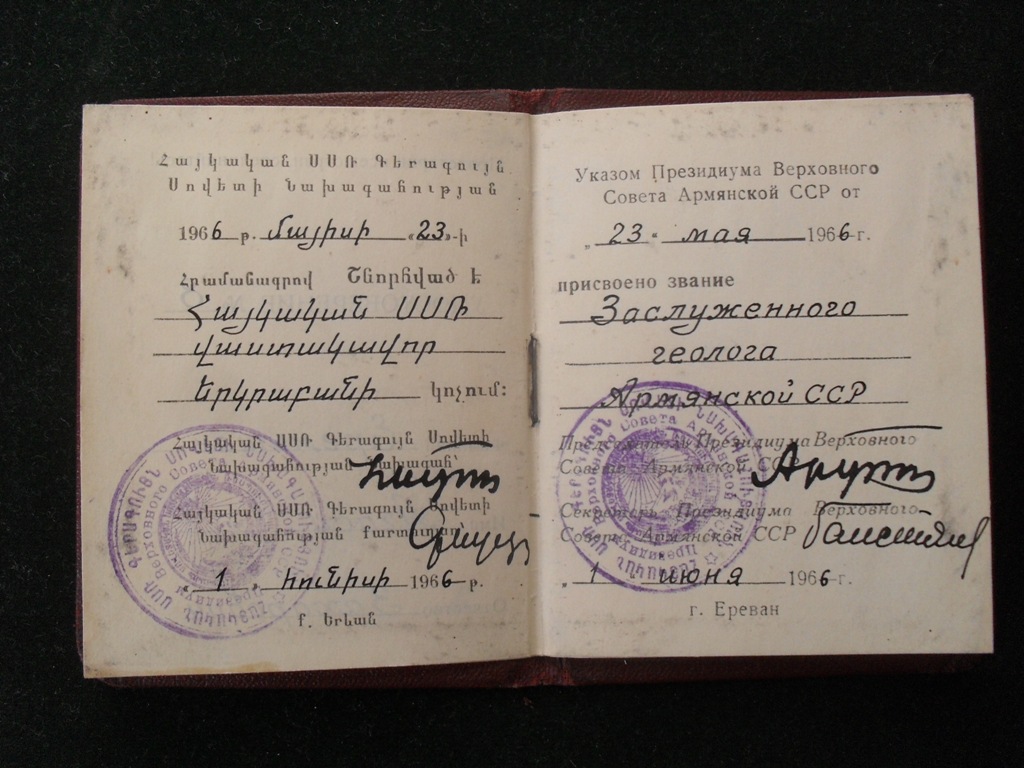 Հայկական ՍՍՌ Գերագույն
Սովետի Նախագահության
1966 թ. մայիսի «23»-ի
Հրամանագրով Շնորհված է
Հայկական ՍՍՌ
վաստակավոր
երկրաբանի կոչում:
Հայկական ՍՍՌ Գերագույն Սովետի
նախագահության նախագահ՝
Հայկական ՍՍՌ Գերագույն Սովետի
Նախագահության քարտուղար՝
«1» հունիսի 1966 թ.
ք. Երևան
Указом Президиума Верховного
Совета Армянской ССР от
„23“ мая 1966 г.
присвоено звание
Заслуженного
геолога
Армянской ССР
Председатель Президиума Верховного
Совета Армянской ССР
Секретарь Президиума Верховного
Совета Армянской ССР
„1“ июня 1966 г.
г. Ереван